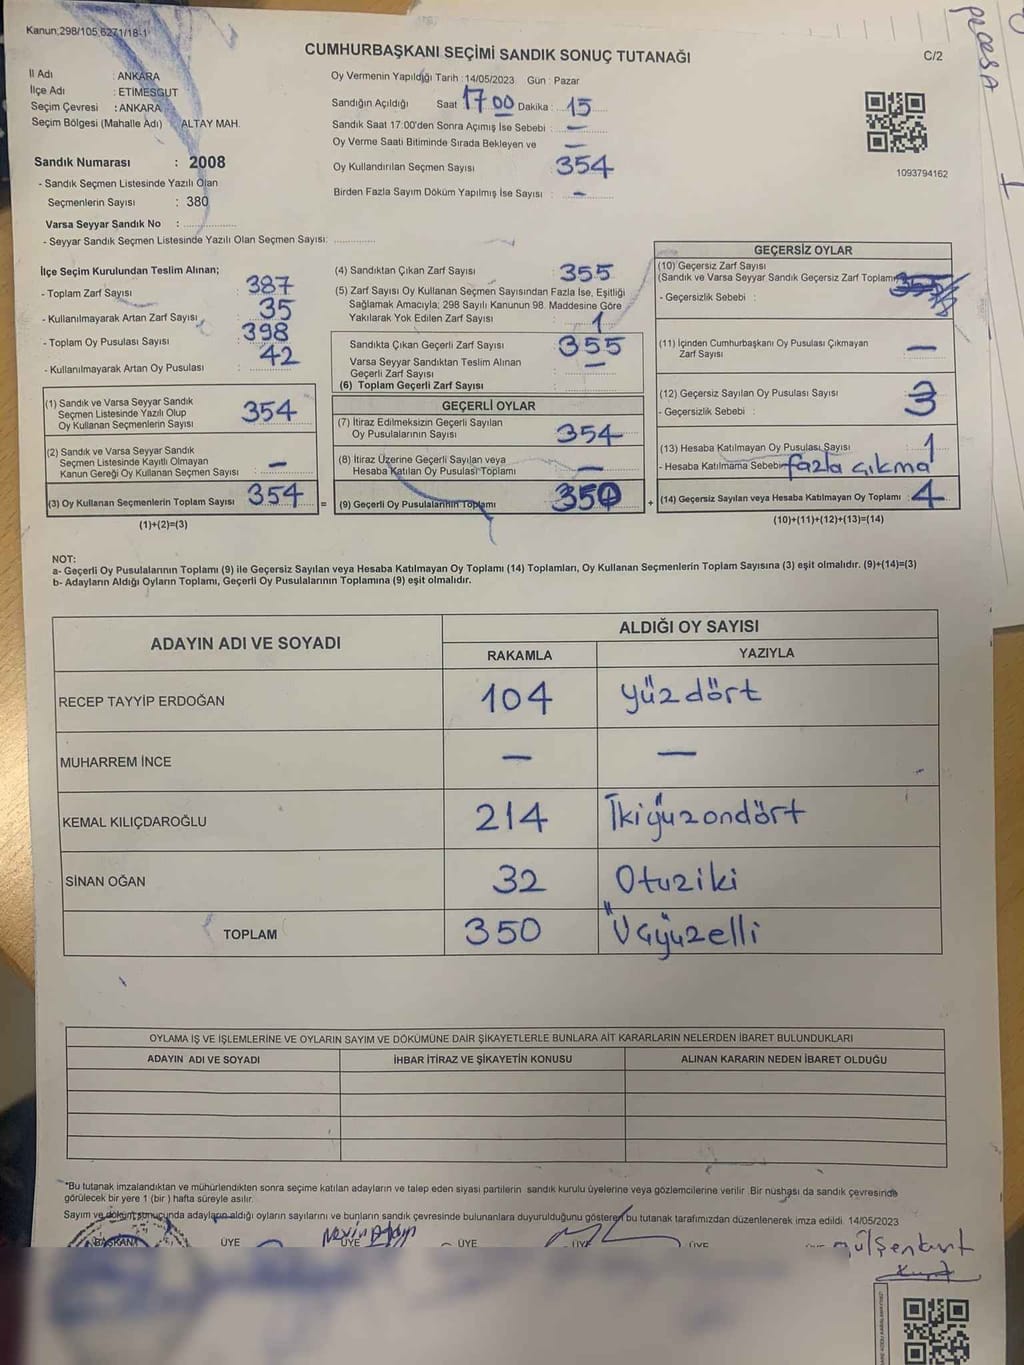 Kanun;298/105,6271/18-1
CUMHURBAŞKANI SEÇİMİ SANDIK SONUÇ TUTANAĞI
C/2
İl Adı : ANKARA
İlçe Adı : ETİMESGUT
Seçim Çevresi : ANKARA
Seçim Bölgesi (Mahalle Adı) ALTAY MAH.
Sandık Numarası : 2008
- Sandık Seçmen Listesinde Yazılı Olan
Seçmenlerin Sayısı : 380
Varsa Seyyar Sandık No :
- Seyyar Sandık Seçmen Listesinde Yazılı Olan Seçmen Sayısı:
Oy Vermenin Yapıldığı Tarih :14/05/2023 Gün : Pazar
Sandığın Açıldığı Saat 17 00 Dakika : 15
Sandık Saat 17:00'den Sonra Açımış İse Sebebi : —
Oy Verme Saati Bitiminde Sırada Bekleyen ve —
Oy Kullandırılan Seçmen Sayısı 354
Birden Fazla Sayım Döküm Yapılmış İse Sayısı : -
1093794162
İlçe Seçim Kurulundan Teslim Alınan;
- Toplam Zarf Sayısı 387
- Kullanılmayarak Artan Zarf Sayısı 35
- Toplam Oy Pusulası Sayısı 398
- Kullanılmayarak Artan Oy Pusulası 42
(1) Sandık ve Varsa Seyyar Sandık
Seçmen Listesinde Yazılı Olup
Oy Kullanan Seçmenlerin Sayısı 354
(2) Sandık ve Varsa Seyyar Sandık
Seçmen Listesinde Kayıtlı Olmayan
Kanun Gereği Oy Kullanan Seçmen Sayısı : —
(3) Oy Kullanan Seçmenlerin Toplam Sayısı 354 =
(1)+(2)=(3)
(4) Sandıktan Çıkan Zarf Sayısı : 355
(5) Zarf Sayısı Oy Kullanan Seçmen Sayısından Fazla İse, Eşitliği
Sağlamak Amacıyla; 298 Sayılı Kanunun 98. Maddesine Göre
Yakılarak Yok Edilen Zarf Sayısı : 1
Sandıkta Çıkan Geçerli Zarf Sayısı 355
Varsa Seyyar Sandıktan Teslim Alınan —
Geçerli Zarf Sayısı
(6) Toplam Geçerli Zarf Sayısı :
GEÇERLİ OYLAR
(7) İtiraz Edilmeksizin Geçerli Sayılan
Oy Pusulalarının Sayısı 354
(8) İtiraz Üzerine Geçerli Sayılan veya
Hesaba Katılan Oy Pusulası Toplamı —
(9) Geçerli Oy Pusulalarının Toplamı 350 +
GEÇERSİZ OYLAR
(10) Geçersiz Zarf Sayısı
(Sandık ve Varsa Seyyar Sandık Geçersiz Zarf Toplamı)
- Geçersizlik Sebebi :
(11) İçinden Cumhurbaşkanı Oy Pusulası Çıkmayan
Zarf Sayısı —
(12) Geçersiz Sayılan Oy Pusulası Sayısı 3
- Geçersizlik Sebebi :
(13) Hesaba Katılmayan Oy Pusulası Sayısı 1
- Hesaba Katılmama Sebebi fazla çıkma
(14) Geçersiz Sayılan veya Hesaba Katılmayan Oy Toplamı : 4
(10)+(11)+(12)+(13)=(14)
NOT:
a- Geçerli Oy Pusulalarının Toplamı (9) ile Geçersiz Sayılan veya Hesaba Katılmayan Oy Toplamı (14) Toplamları, Oy Kullanan Seçmenlerin Toplam Sayısına (3) eşit olmalıdır. (9)+(14)=(3)
b- Adayların Aldığı Oyların Toplamı, Geçerli Oy Pusulalarının Toplamına (9) eşit olmalıdır.
ADAYIN ADI VE SOYADI
ALDIĞI OY SAYISI
RAKAMLA YAZIYLA
RECEP TAYYİP ERDOĞAN 104 yüzdört
MUHARREM İNCE — —
KEMAL KILIÇDAROĞLU 214 İkiyüzondört
SİNAN OĞAN 32 Otuziki
TOPLAM 350 Üçyüzelli
OYLAMA İŞ VE İŞLEMLERİNE VE OYLARIN SAYIM VE DÖKÜMÜNE DAİR ŞİKAYETLERLE BUNLARA AİT KARARLARIN NELERDEN İBARET BULUNDUKLARI
ADAYIN ADI VE SOYADI İHBAR İTİRAZ VE ŞİKAYETİN KONUSU ALINAN KARARIN NEDEN İBARET OLDUĞU
*Bu tutanak imzalandıktan ve mühürlendikten sonra seçime katılan adayların ve talep eden siyasi partilerin sandık kurulu üyelerine veya gözlemcilerine verilir .Bir nushası da sandık çevresinde
görülecek bir yere 1 (bir ) hafta süreyle asılır.
Sayım ve döküm sonucunda adayların aldığı oyların sayılarını ve bunların sandık çevresinde bulunanlara duyurulduğunu gösteren bu tutanak tarafımızdan düzenlenerek imza edildi. 14/05/2023
BAŞKAN ÜYE ÜYE ÜYE ÜYE ÜYE